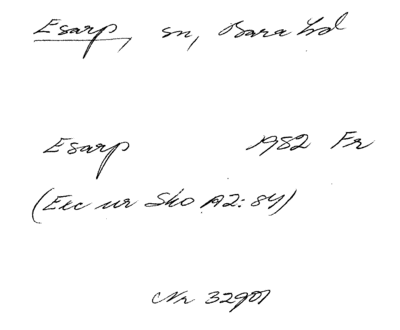 Esarp, sn, Bara hd
Esarp 1982 Fr
(Exc ur Sko A2:84)
Nr 32907